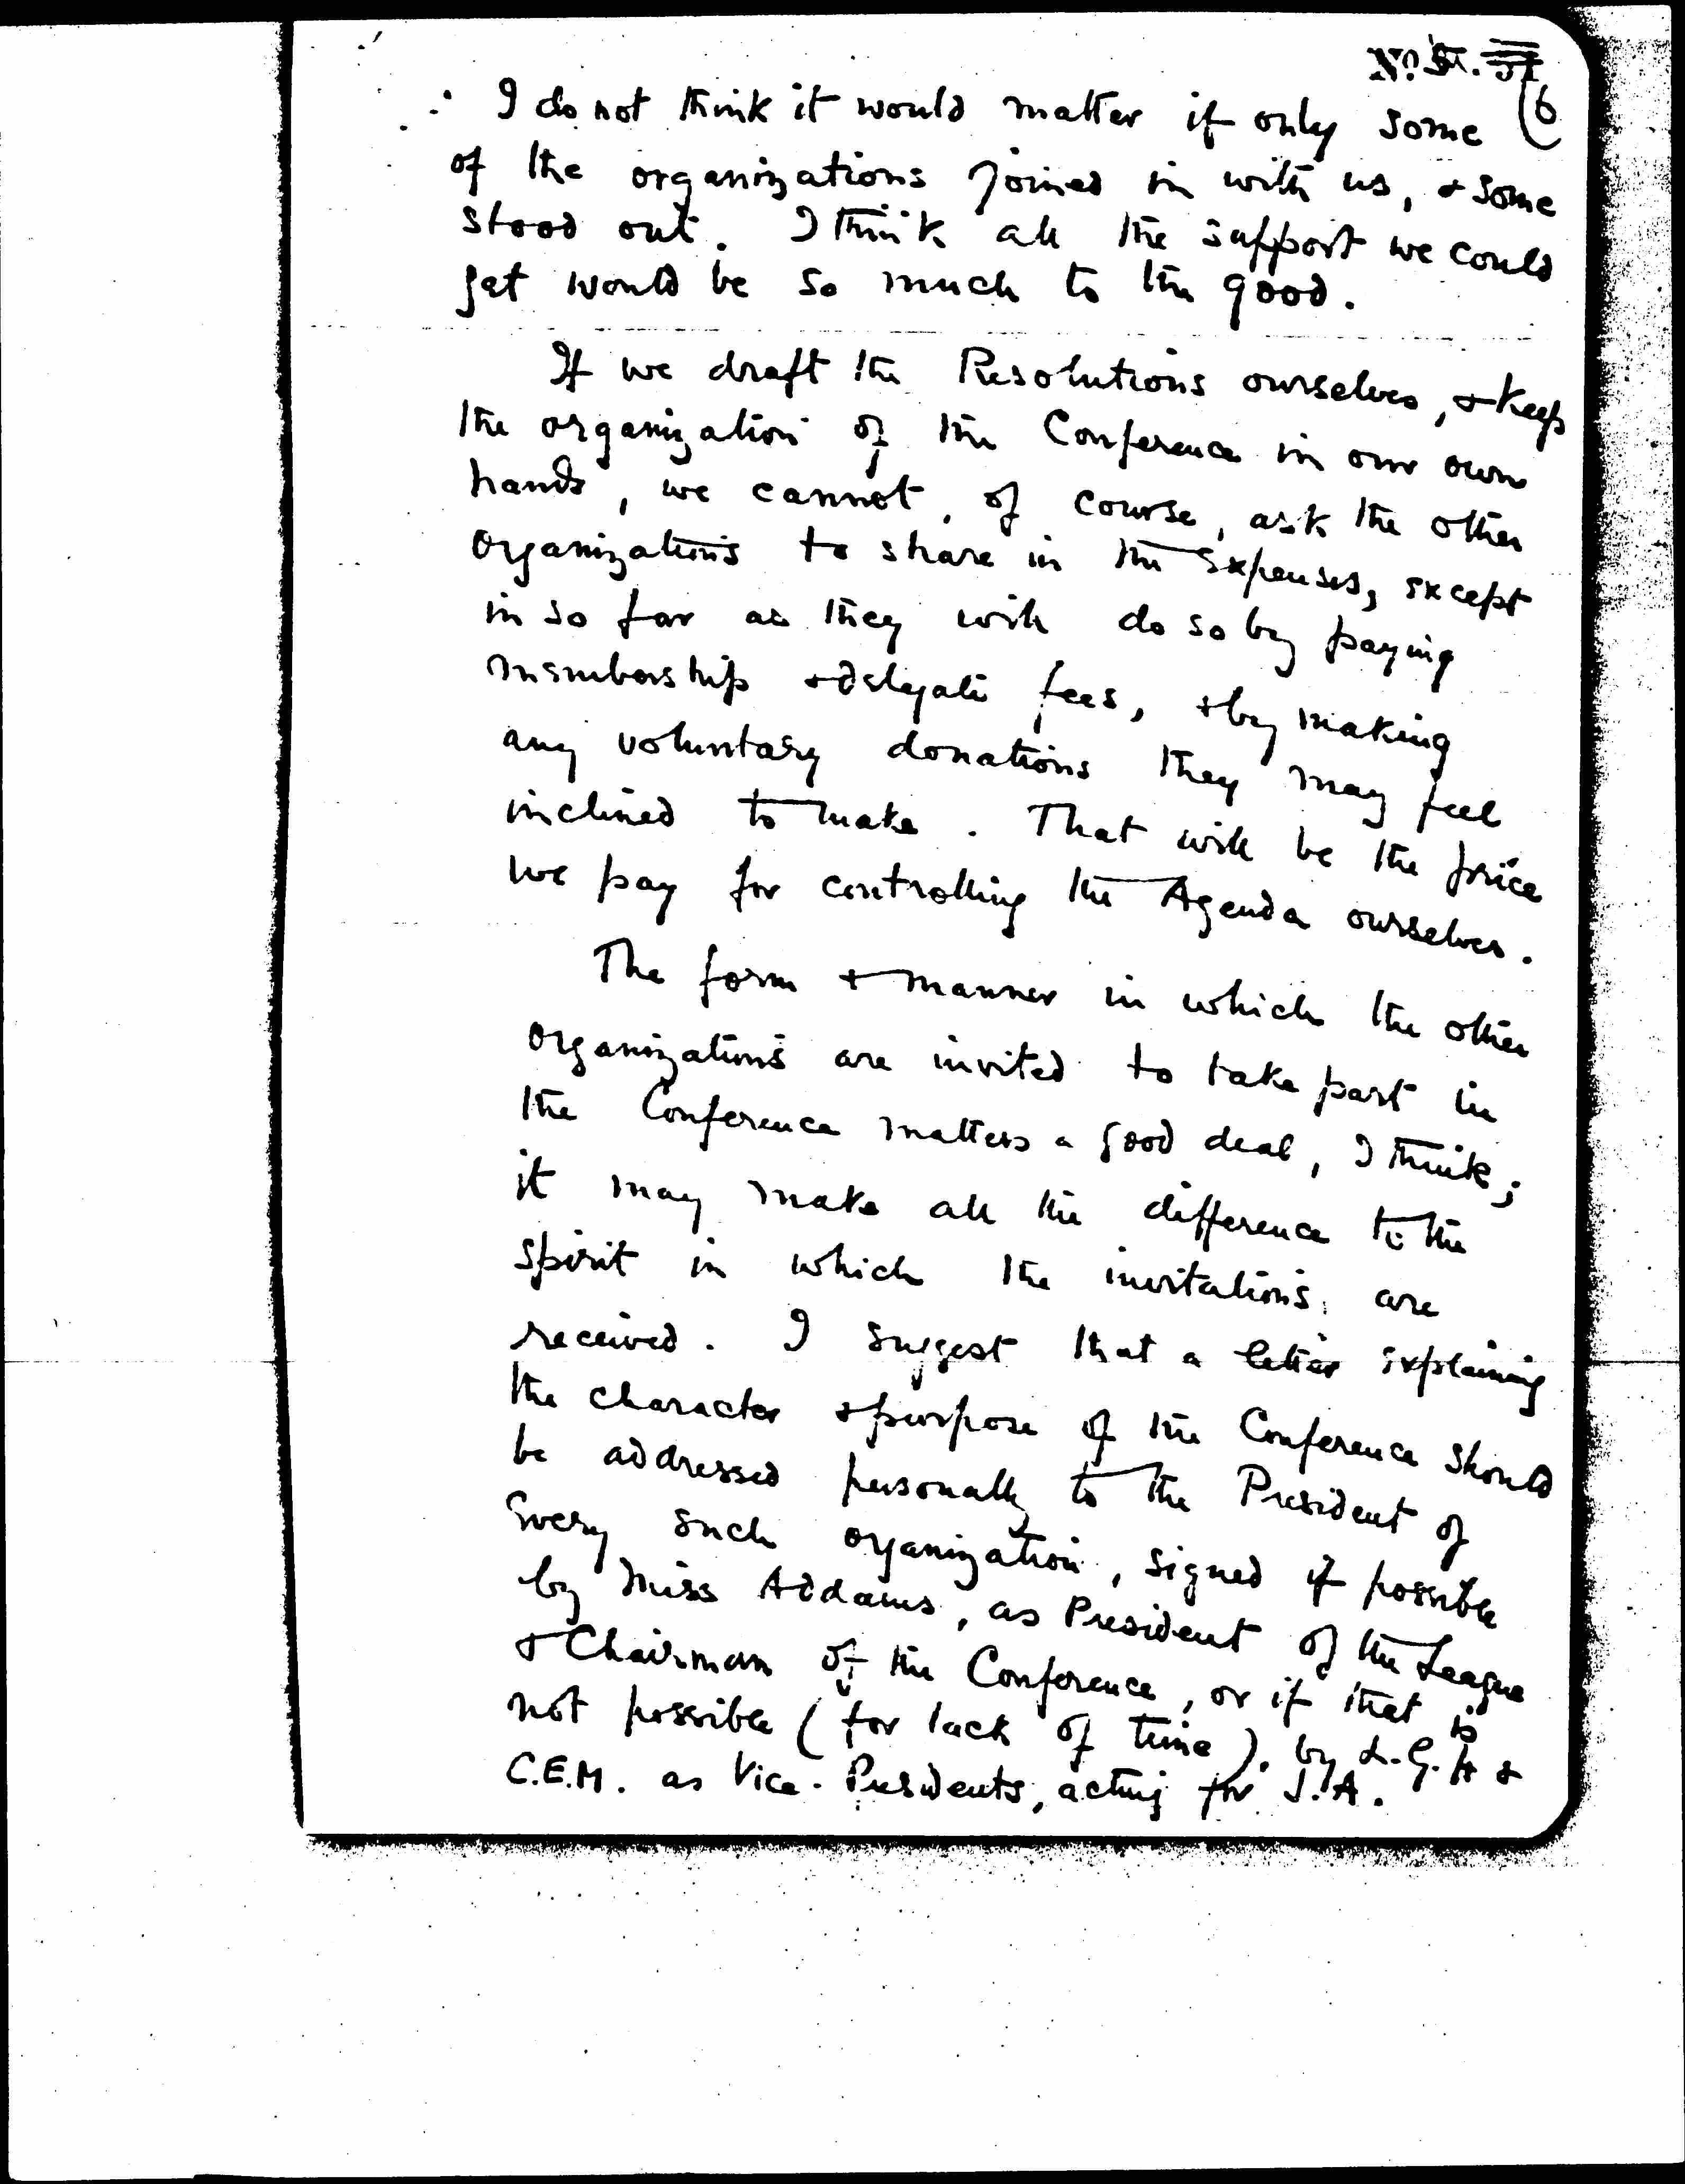 (6
I do not think it would matter if only some
of the organizations joined in with us, & some
stood out. I think all the support we could
get would be so much to the good.
If we draft the Resolutions ourselves, & keep
the organization of the Conference in our own
hands, we cannot, of course, ask the other
organizations to share in the expenses, except
in so far as they will do so by paying
membership & delegate fees, & by making
any voluntary donations they may feel
inclined to make. That will be the price
we pay for controlling the Agenda ourselves.
The form & manner in which the other
organizations are invited to take part in
the Conference matters a good deal, I think;
it may make all the difference to the
spirit in which the invitations are
received. I suggest that a letter explaining
the character & purpose of the Conference should
be addressed personally to the President of
every such organization, signed if possible
by Miss Addams, as President of the League
& Chairman of the Conference, or if that is
not possible (for lack of time), by L.G.H &
C.E.M. as Vice-Presidents, acting for J.A.